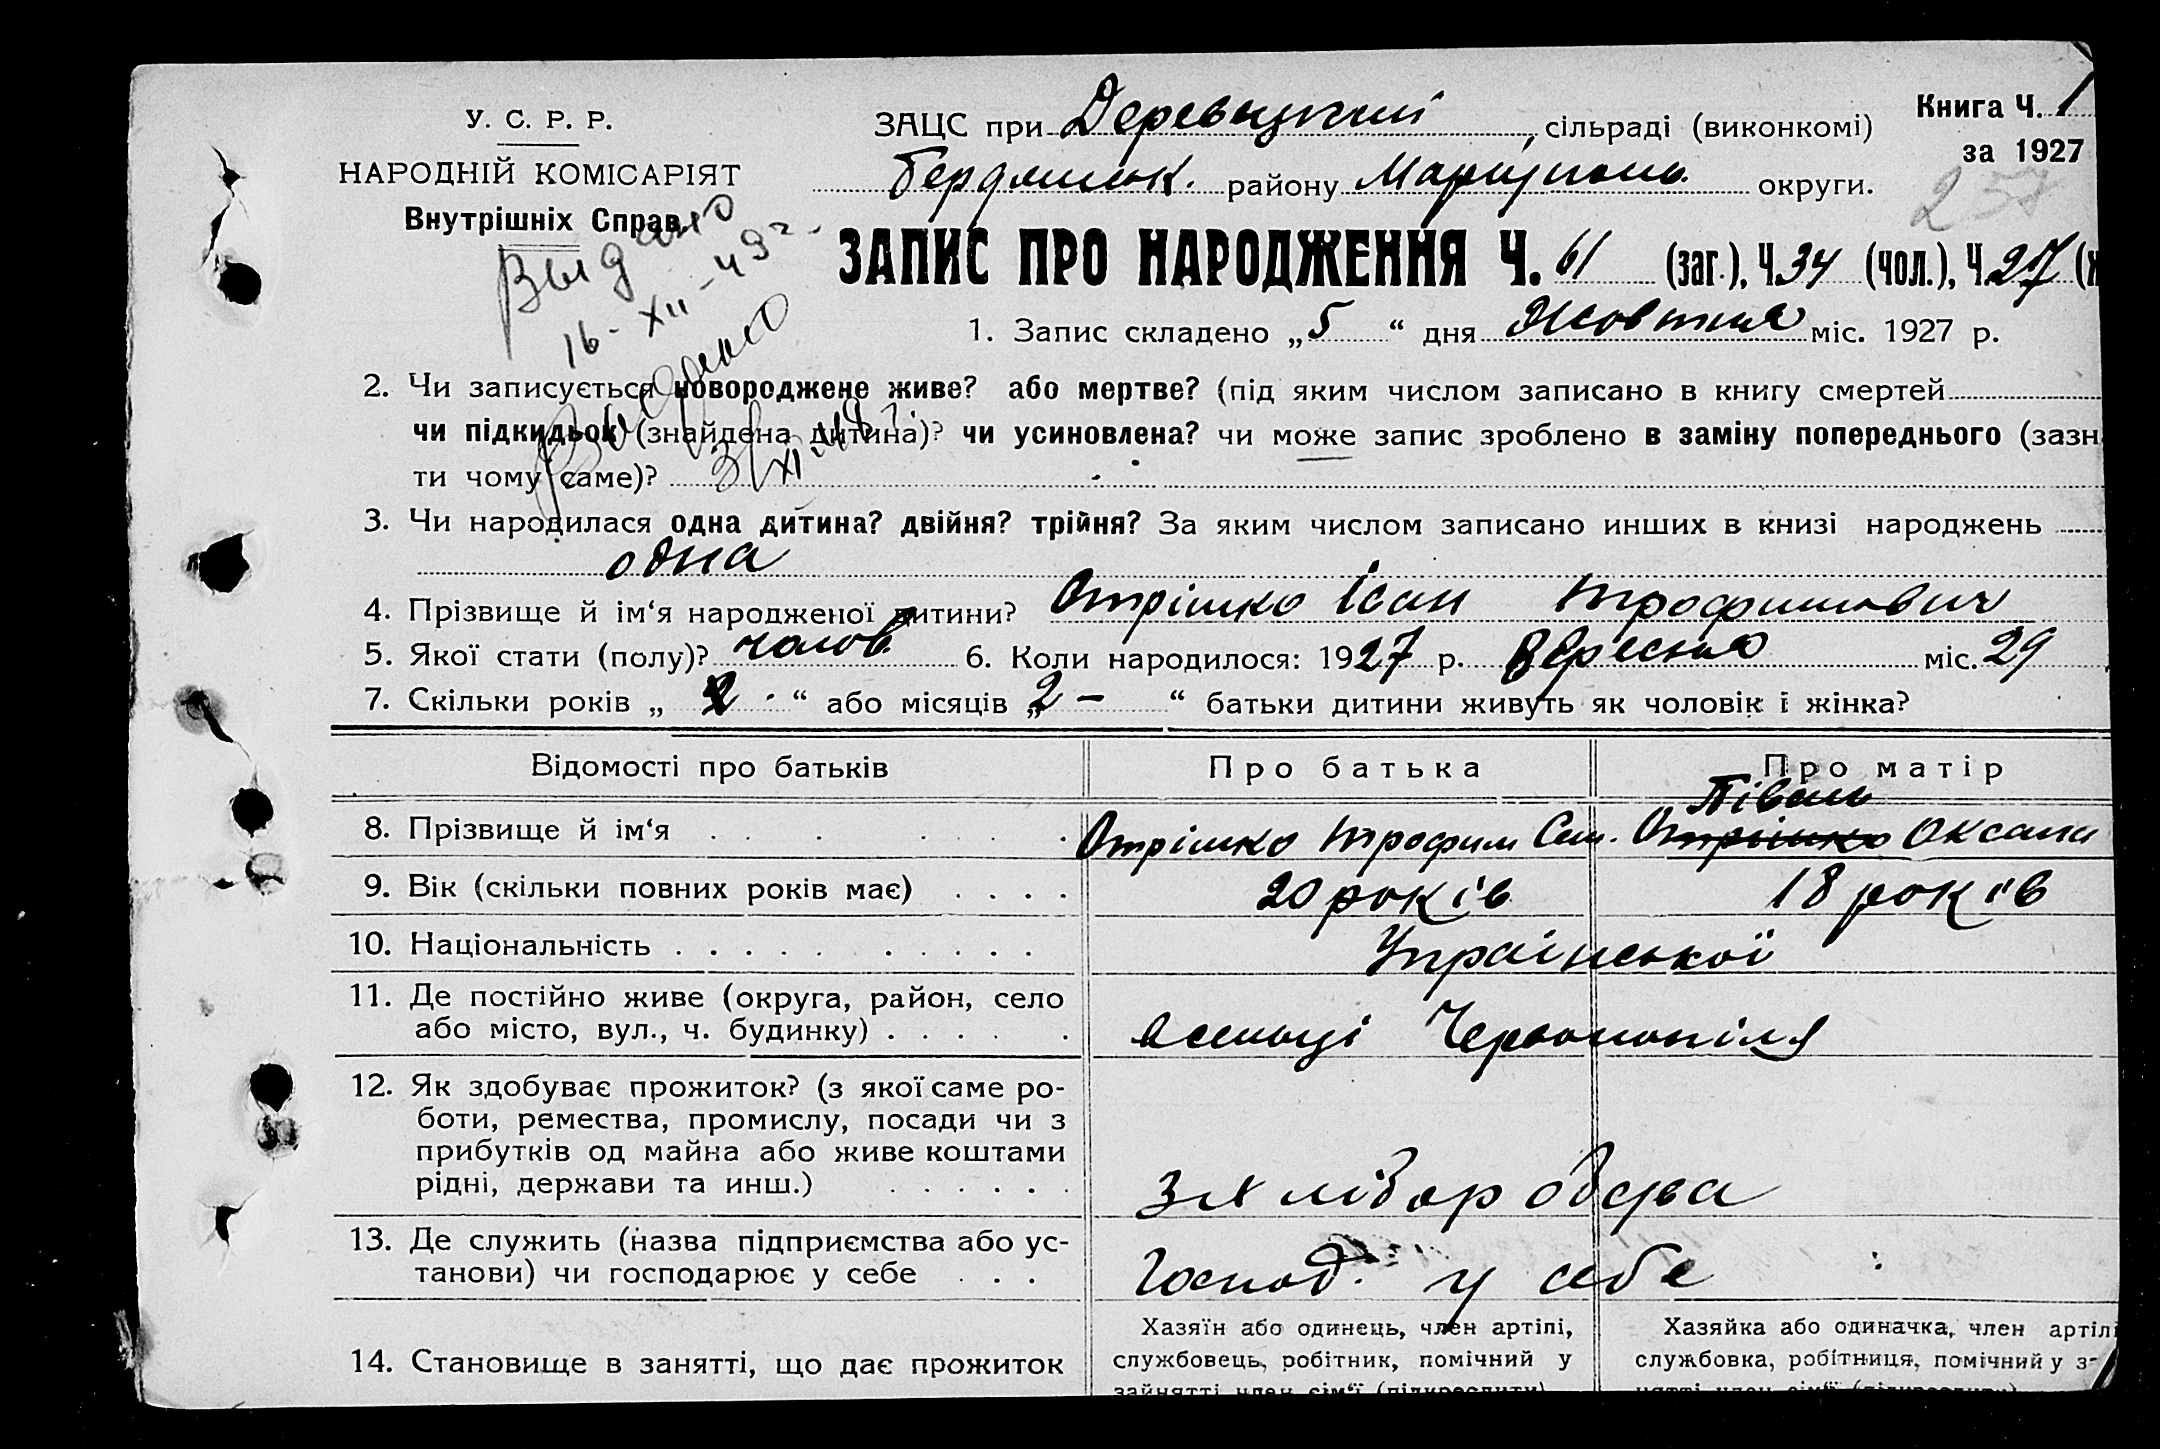 У. С. Р. Р.
НАРОДНІЙ КОМІСАРІЯТ
Внутрішніх Справ
Выдано
16-XII-49 г.
Выдано
ЗАЦС при Деревецкий, сільраді (виконкомі)
Бердянськ. району Маріуполь. округи.
Книга Ч. 1
за 1927
257
ЗАПИС ПРО НАРОДЖЕННЯ Ч. 61 (заг.), Ч. 34 (чол.), Ч. 27 (ж
1. Запис складено „5“ дня Жовтня міс. 1927 р.
2. Чи записується новороджене живе? або мертве? (під яким числом записано в книгу смертей
чи підкидьок (знайдена дитина)? чи усиновлена? чи може запис зроблено в заміну попереднього (зазн
ти чому саме)?
3. Чи народилася одна дитина? двійня? трійня? За яким числом записано инших в книзі народжень
одна
4. Прізвище й ім‘я народженої дитини? Отрішко Іван Трофимович
5. Якої стати (полу)? чолов. 6. Коли народилося: 1927 р. Вересня міс. 29
7. Скільки років „ “ або місяців „2 - “ батьки дитини живуть як чоловік і жінка?
Відомості про батьків Про батька Про матір
8. Прізвище й ім‘я Отрішко Трофим Сем. Отрішко Півень Оксана
9. Вік (скільки повних років має) 20 років 18 років
10. Національність Української
11. Де постійно живе (округа, район, село
або місто, вул., ч. будинку) в селищі Червонопілля
12. Як здобуває прожиток? (з якої саме ро-
боти, ремества, промислу, посади чи з
прибутків од майна або живе коштами
рідні, держави та инш.) з хліборобства
13. Де служить (назва підприємства або ус-
танови) чи господарює у себе Господ. у себе
14. Становище в занятті, що дає прожиток
Хазяїн або одинець, член артілі,
службовець, робітник, помічний у
зайнятті член сім‘ї (підкреслити)
Хазяйка або одиначка, член артілі
службовка, робітниця, помічний у з-
нятті член сім‘ї (підкреслити)